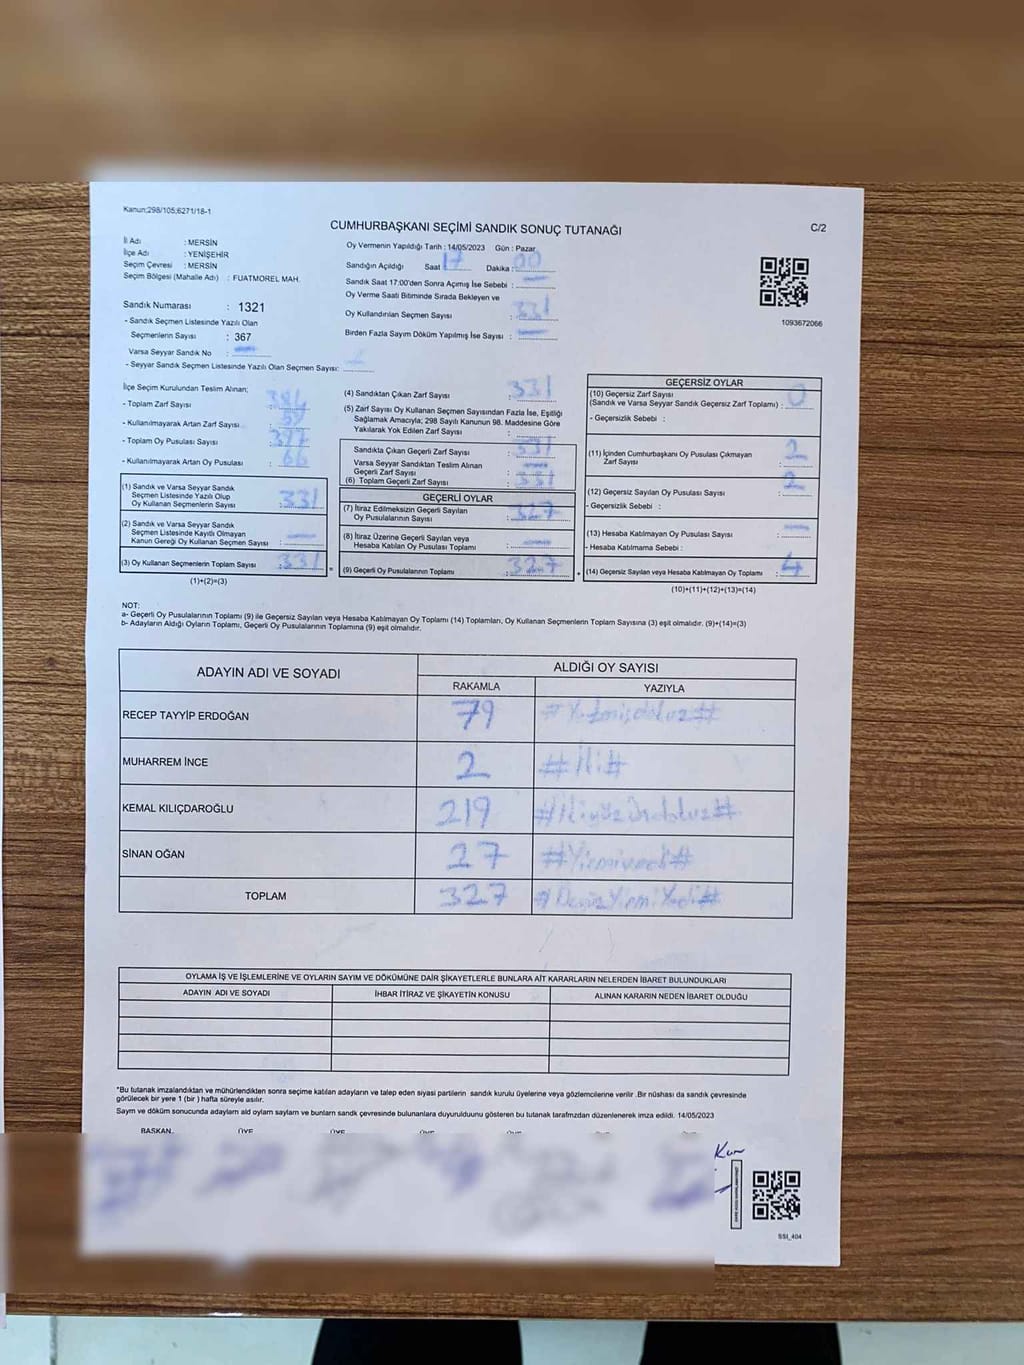 Kanun;298/105;6271/18-1
CUMHURBAŞKANI SEÇİMİ SANDIK SONUÇ TUTANAĞI
C/2
İl Adı : MERSİN
İlçe Adı : YENİŞEHİR
Seçim Çevresi : MERSİN
Seçim Bölgesi (Mahalle Adı) : FUATMOREL MAH.
Sandık Numarası : 1321
- Sandık Seçmen Listesinde Yazılı Olan
Seçmenlerin Sayısı : 367
Varsa Seyyar Sandık No :
- Seyyar Sandık Seçmen Listesinde Yazılı Olan Seçmen Sayısı:
Oy Vermenin Yapıldığı Tarih : 14/05/2023 Gün : Pazar
Sandığın Açıldığı Saat 17 Dakika : 00
Sandık Saat 17:00'den Sonra Açımış İse Sebebi :
Oy Verme Saati Bitiminde Sırada Bekleyen ve
Oy Kullandırılan Seçmen Sayısı : 331
Birden Fazla Sayım Döküm Yapılmış İse Sayısı :
1093672066
İlçe Seçim Kurulundan Teslim Alınan;
- Toplam Zarf Sayısı :
- Kullanılmayarak Artan Zarf Sayısı :
- Toplam Oy Pusulası Sayısı : 397
- Kullanılmayarak Artan Oy Pusulası : 66
(1) Sandık ve Varsa Seyyar Sandık
Seçmen Listesinde Yazılı Olup
Oy Kullanan Seçmenlerin Sayısı : 331
(2) Sandık ve Varsa Seyyar Sandık
Seçmen Listesinde Kayıtlı Olmayan
Kanun Gereği Oy Kullanan Seçmen Sayısı :
(3) Oy Kullanan Seçmenlerin Toplam Sayısı : 331
(1)+(2)=(3)
(4) Sandıktan Çıkan Zarf Sayısı : 331
(5) Zarf Sayısı Oy Kullanan Seçmen Sayısından Fazla İse, Eşitliği
Sağlamak Amacıyla; 298 Sayılı Kanunun 98. Maddesine Göre
Yakılarak Yok Edilen Zarf Sayısı :
Sandıkta Çıkan Geçerli Zarf Sayısı : 331
Varsa Seyyar Sandıktan Teslim Alınan
Geçerli Zarf Sayısı :
(6) Toplam Geçerli Zarf Sayısı : 331
GEÇERLİ OYLAR
(7) İtiraz Edilmeksizin Geçerli Sayılan
Oy Pusulalarının Sayısı : 327
(8) İtiraz Üzerine Geçerli Sayılan veya
Hesaba Katılan Oy Pusulası Toplamı :
(9) Geçerli Oy Pusulalarının Toplamı : 327
GEÇERSİZ OYLAR
(10) Geçersiz Zarf Sayısı
(Sandık ve Varsa Seyyar Sandık Geçersiz Zarf Toplamı) : 0
- Geçersizlik Sebebi :
(11) İçinden Cumhurbaşkanı Oy Pusulası Çıkmayan
Zarf Sayısı : 2
(12) Geçersiz Sayılan Oy Pusulası Sayısı : 2
- Geçersizlik Sebebi :
(13) Hesaba Katılmayan Oy Pusulası Sayısı :
- Hesaba Katılmama Sebebi :
(14) Geçersiz Sayılan veya Hesaba Katılmayan Oy Toplamı : 4
(10)+(11)+(12)+(13)=(14)
NOT:
a- Geçerli Oy Pusulalarının Toplamı (9) ile Geçersiz Sayılan veya Hesaba Katılmayan Oy Toplamı (14) Toplamları, Oy Kullanan Seçmenlerin Toplam Sayısına (3) eşit olmalıdır. (9)+(14)=(3)
b- Adayların Aldığı Oyların Toplamı, Geçerli Oy Pusulalarının Toplamına (9) eşit olmalıdır.
ADAYIN ADI VE SOYADI
ALDIĞI OY SAYISI
RAKAMLA YAZIYLA
RECEP TAYYİP ERDOĞAN 79
MUHARREM İNCE 2 #İki#
KEMAL KILIÇDAROĞLU 219
SİNAN OĞAN 27 #Yirmiyedi#
TOPLAM 327
OYLAMA İŞ VE İŞLEMLERİNE VE OYLARIN SAYIM VE DÖKÜMÜNE DAİR ŞİKAYETLERLE BUNLARA AİT KARARLARIN NELERDEN İBARET BULUNDUKLARI
ADAYIN ADI VE SOYADI İHBAR İTİRAZ VE ŞİKAYETİN KONUSU ALINAN KARARIN NEDEN İBARET OLDUĞU
*Bu tutanak imzalandıktan ve mühürlendikten sonra seçime katılan adayların ve talep eden siyasi partilerin sandık kurulu üyelerine veya gözlemcilerine verilir .Bir nüshası da sandık çevresinde
görülecek bir yere 1 (bir ) hafta süreyle asılır.
Sayım ve döküm sonucunda adayların ald oyların sayılarn ve bunların sandık çevresinde bulunanlara duyurulduunu gösteren bu tutanak tarafmzdan düzenlenerek imza edildi. 14/05/2023
BAŞKAN ÜYE ÜYE ÜYE ÜYE ÜYE ÜYE
SSI_404